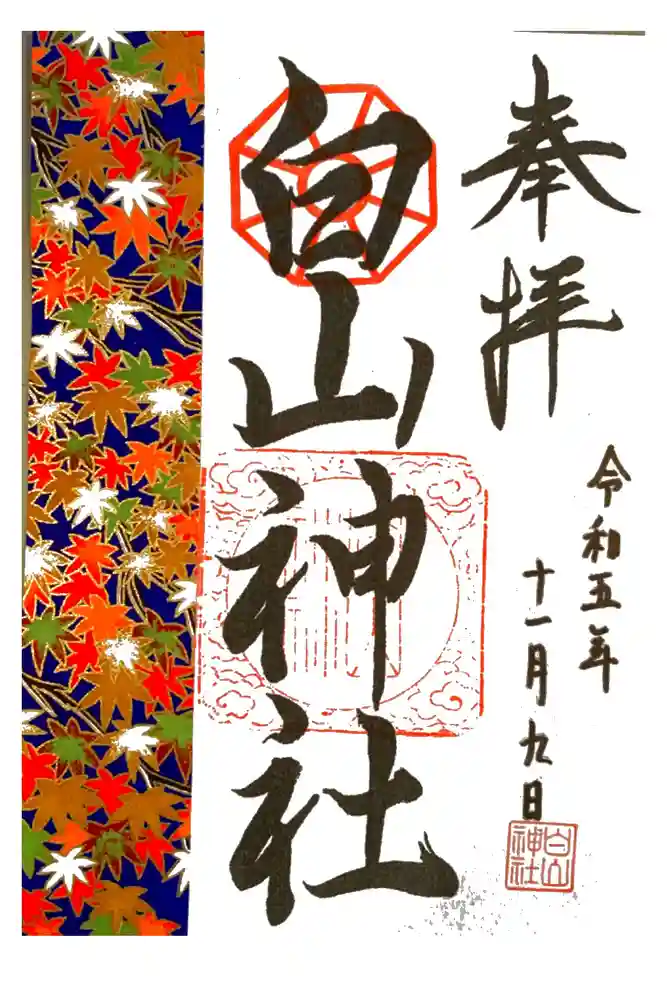 奉拝
令和五年
十一月九日
白山神社
白山
神社